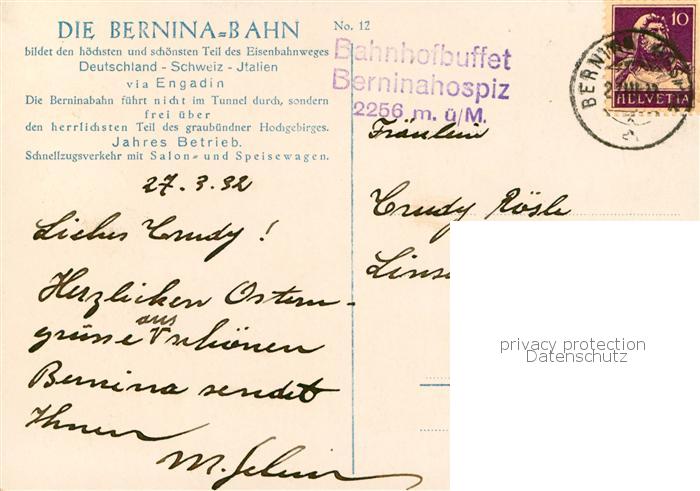 DIE BERNINA-BAHN
bildet den höchsten und schönsten Teil des Eisenbahnweges
Deutschland - Schweiz - Jtalien
via Engadin
Die Berninabahn führt nicht im Tunnel durch, sondern
frei über
den herrlichsten Teil des graubündner Hochgebirges.
Jahres Betrieb.
Schnellzugsverkehr mit Salon- und Speisewagen.
No. 12
Bahnhofbuffet
Berninahospiz
2256 m. ü/M.
10
HELVETIA
BERNINA
27.3.32
Liebes Trudy!
Herzlichen Ostern-
grüsse aus
Bernina sendet
Ihnen
M.
Fräulein
Trudy Rösle
privacy protection
Datenschutz